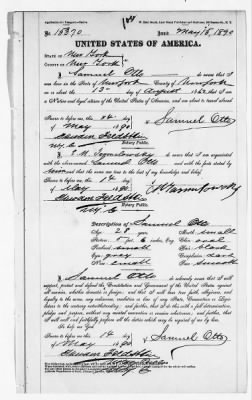 No. 15370. Issued May 15, 1890
UNITED STATES OF AMERICA.
STATE OF New York
COUNTY OF New York
I, Samuel Otto do swear that I was
born in the State of New York County of New York
on or about the 13 day of August 1862 that I am
a Native and loyal citizen of the United States of America, and am about to travel abroad.
Sworn to before me this 14 day
of May 1890 Samuel Otto
Notary Public.
N.Y. Co
do swear that I am acquainted
with the above-named Samuel Otto and with the facts stated by
him and that the same are true to the best of my knowledge and belief.
Sworn to before me this 14 day
of May 1890
Notary Public.
N.Y. Co
Description of Samuel Otto
Age: 28 years Mouth: small
Stature: 5 ft. 6 inches, Eng. Chin: oval
Forehead: small Hair: black
Eyes: grey Complexion: dark
Nose: small Face: smooth
I, Samuel Otto do solemnly swear that I will
support, protect and defend the Constitution and Government of the United States against
all enemies, whether domestic or foreign; and that I will bear true faith, allegiance, and
loyalty to the same, any ordinance, resolution or law of any State, Convention or Legis-
lature to the contrary notwithstanding; and further, that I do this with a full determination,
pledge and purpose, without any mental reservation or evasion whatsoever; and further, that
I will well and faithfully perform all the duties which may be required of me by law.
So help me God.
Sworn to before me this 14 day
of May 1890 Samuel Otto